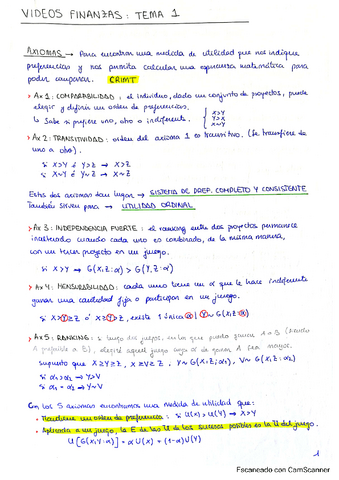 VIDEOS FINANZAS: TEMA 1
AXIOMAS → Para encontrar una medida de utilidad que nos indique
preferencias y nos permita calcular una esperanza matemática para
poder comparar. CRIMT
> Ax 1: COMPARABILIDAD: el individuo, dado un conjunto de proyectos, puede
elegir y definir un orden de preferencias. { X>Y
↳ Sabe si prefiere uno, otro o indiferente. Y>X
X~Y
> Ax 2: TRANSITIVIDAD: orden del axioma 1 es transitivo. (Se transfiere de
uno a otro).
si X>Y é Y>Z → X>Z
si X~Y é Y~Z → X~Z
Estos dos axiomas dan lugar → SISTEMA DE PREF. COMPLETO Y CONSISTENTE
También sirven para → UTILIDAD ORDINAL
> Ax 3: INDEPENDENCIA FUERTE: el ranking entre dos proyectos permanece
inalterado cuando cada uno es combinado, de la misma manera,
con un tercer proyecto en un juego.
si X>Y → G(X,Z:α) > G(Y,Z:α)
> Ax 4: MENSURABILIDAD: cada uno tiene un α que le hace indiferente
ganar una cantidad fija o participar en un juego.
si X>Y≥Z ó X≥Y>Z, existe 1 única α | Y~G(X,Z:α)
> Ax 5: RANKING: si luego dos juegos, en los que puedo ganar A o B (siendo
A preferible a B), elegiré aquel juego cuya α de ganar A sea mayor.
supuesto que X≥Y≥Z, X≥V≥Z, Y~G(X,Z;α₁), V~G(X,Z;α₂)
si α₁>α₂ → Y>V
si α₁=α₂ → Y~V
Con los 5 axiomas encontramos una medida de utilidad que:
• Mantiene un orden de preferencias: si U(X)>U(Y) → X>Y
• Aplicada a un juego, la E de las U de los sucesos posibles es la U del juego.
U[G(X,Y:α)] = αU(X) + (1-α)U(Y)
1
Escaneado con CamScanner